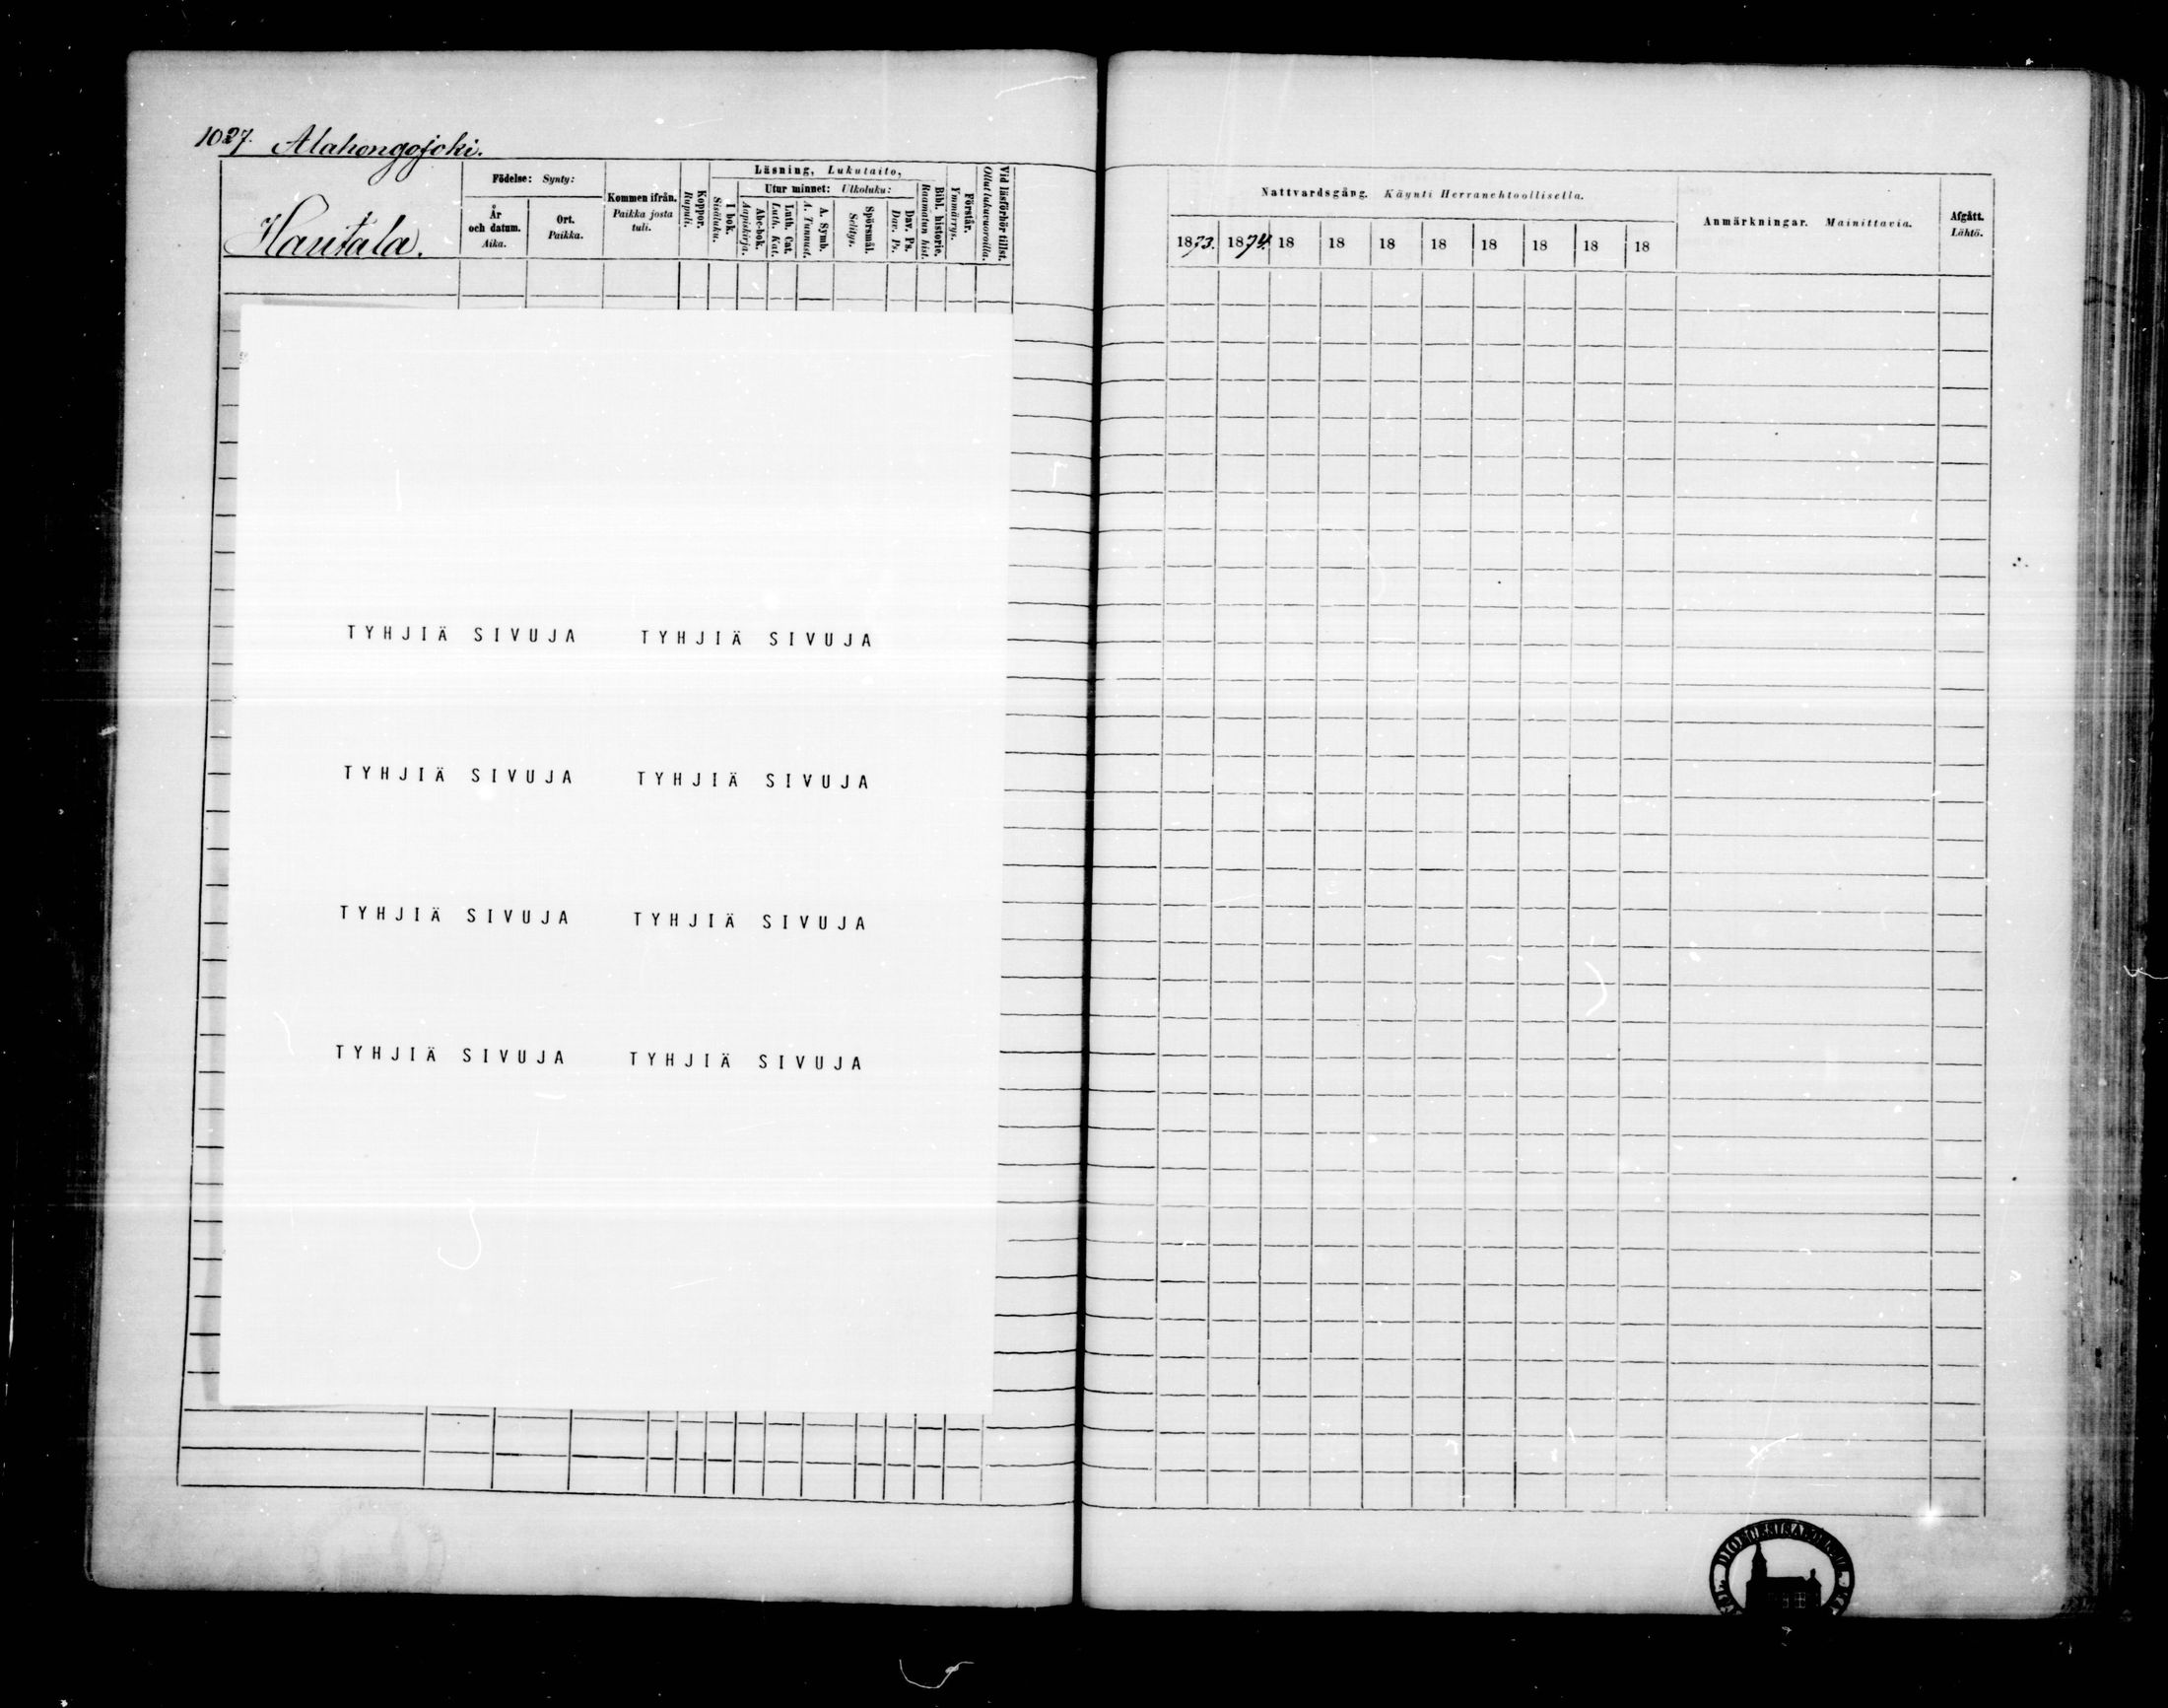 1027. Alahongojoki.
Hautala.
Födelse: Synty:
År och datum. Aika.
Ort. Paikka.
Kommen ifrån. Paikka josta tuli.
Koppor. Rupuli.
Läsning, Lukutaito,
I bok. Sisäluku.
Utur minnet: Ulkoluku:
Abc-bok. Aapiskirja.
Luth. Cat. Luth. Kat.
A. Symb. A. Tunnust.
Spörsmål. Selitys.
Dav. Ps. Dav. Ps.
Bibl. historie. Raamatun hist.
Förstår. Ymmärrys.
Vid läsförhör tillst. Ollut lukuvuoroilla.
Nattvardsgång. Käynti Herranehtoollisella.
1873. 1874. 18 18 18 18 18 18 18 18
Anmärkningar. Mainittavia.
Afgått. Lähtö.
TYHJIÄ SIVUJA TYHJIÄ SIVUJA
TYHJIÄ SIVUJA TYHJIÄ SIVUJA
TYHJIÄ SIVUJA TYHJIÄ SIVUJA
TYHJIÄ SIVUJA TYHJIÄ SIVUJA